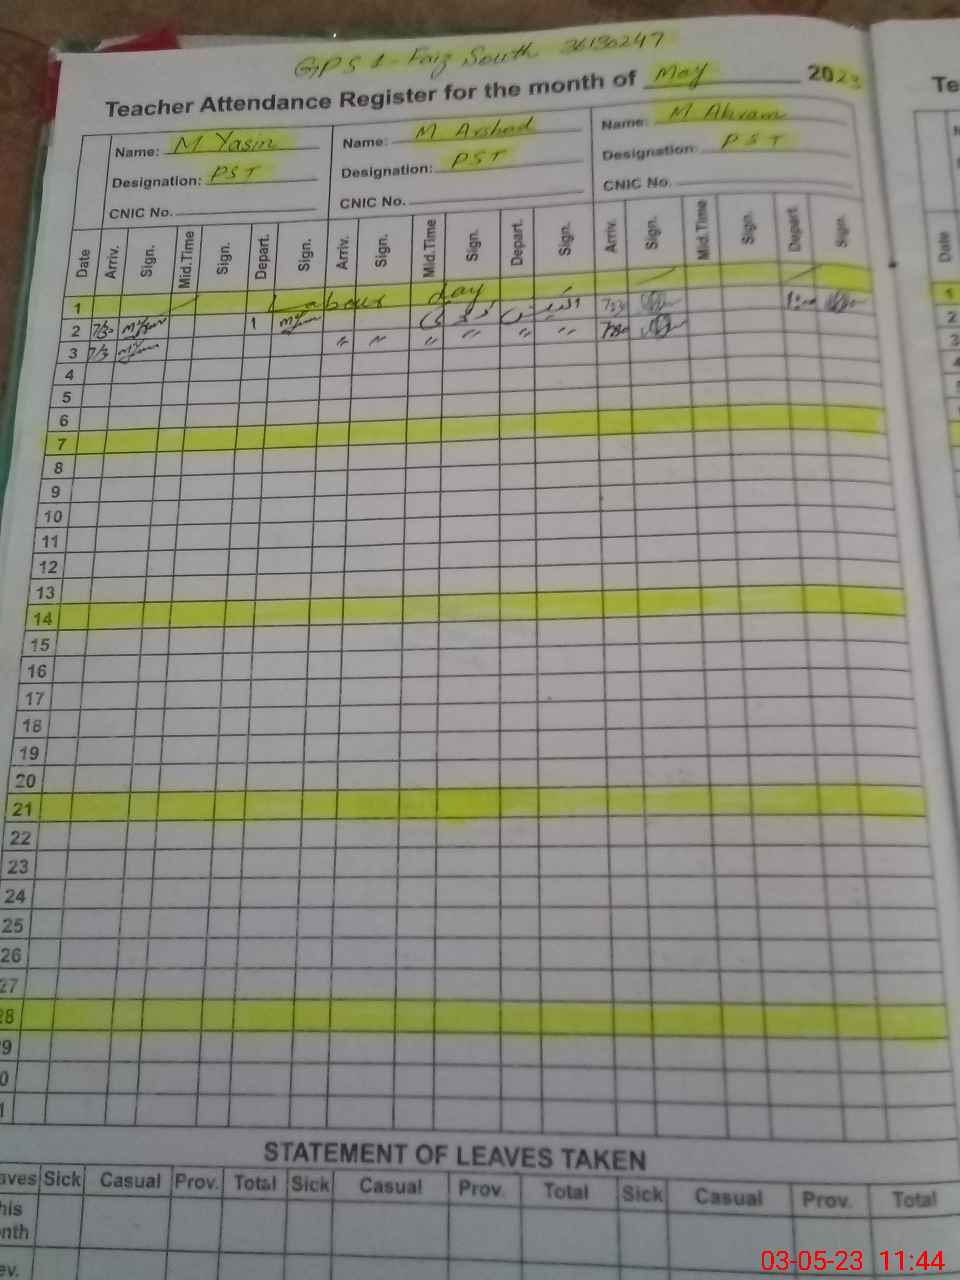 GPS 1 - Faiz South 36130247
Teacher Attendance Register for the month of May 2023
Name: M Yasin
Designation: PST
CNIC No.
Name: M Arshad
Designation: PST
CNIC No.
Name: M Akram
Designation: PST
CNIC No.
Date Arriv. Sign. Mid.Time Sign. Depart. Sign. Arriv. Sign. Mid.Time Sign. Depart. Sign. Arriv. Sign. Mid.Time Sign. Depart. Sign.
1 Labour day
2 7/30 1 7:30 1:00
3 7/3 〃 〃 〃 〃 〃 〃 7:30
4
5
6
7
8
9
10
11
12
13
14
15
16
17
18
19
20
21
22
23
24
25
26
27
28
9
0
1
STATEMENT OF LEAVES TAKEN
aves Sick Casual Prov. Total Sick Casual Prov. Total Sick Casual Prov. Total
his
nth
ev.
Te
Date
1
2
3
03-05-23 11:44